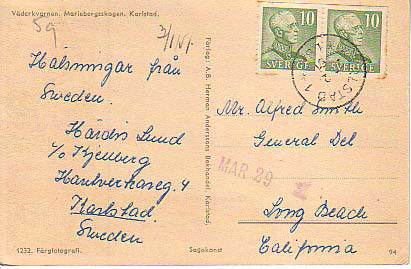 Väderkvarnen. Mariebergsskogen. Karlstad.
59
Hälsningar från
Sweden.
Härdis Lund
c/o Kjenberg
Hantverkareg. 4
Karlstad.
Sweden
1232. Färgfotografi.
Förlag: A.B. Herman Anderssons Bokhandel, Karlstad.
Sagokonst
10
SVERIGE
10
SVERIGE
Mr. Alfred Smith
General Del
MAR 29
Long Beach
California
94